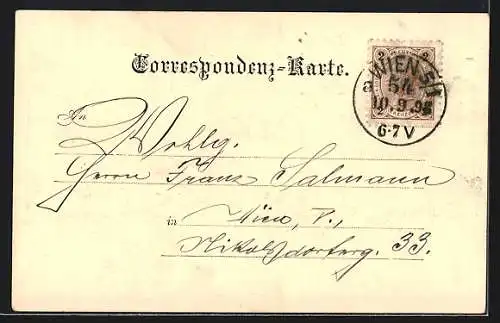 Correspondenz-Karte.
2 2
WIEN
54
10.9.98
6·7V
An Wohlg.
Herrn Franz Salmann
in Wien, V.,
Nikolsdorferg. 33.